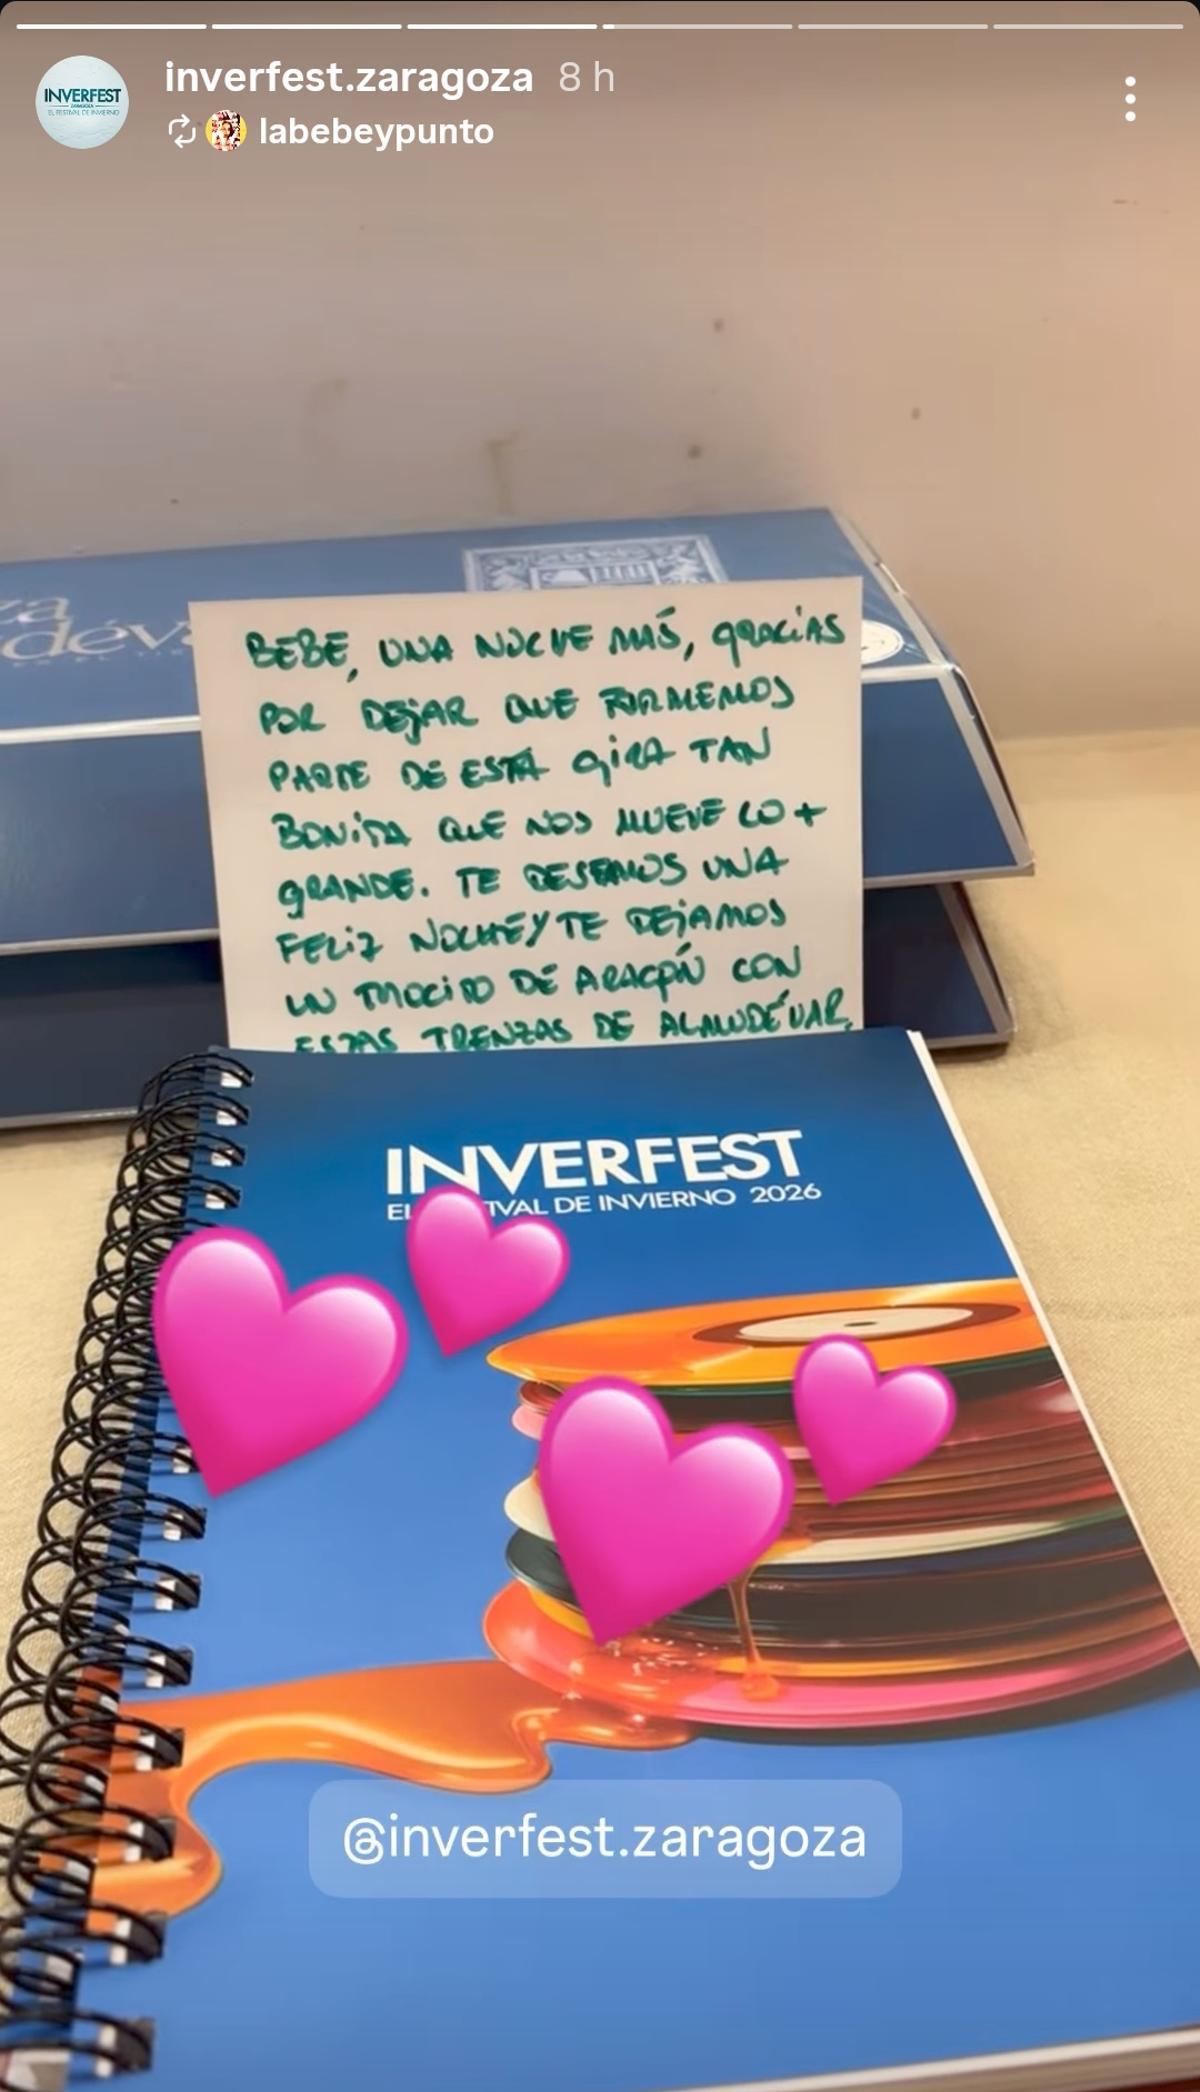 inverfest.zaragoza 8 h
labebeypunto
INVERFEST
ZARAGOZA
EL FESTIVAL DE INVIERNO
za
déva
BEBE, UNA NOCHE MÁS, GRACIAS
POR DEJAR QUE FORMEMOS
PARTE DE ESTA GIRA TAN
BONITA QUE NOS MUEVE LO +
GRANDE. TE DESEAMOS UNA
FELIZ NOCHE Y TE DEJAMOS
UN TROCITO DE ARAGÓN CON
ESTAS TRENZAS DE ALMUDÉVAR.
INVERFEST
EL TIVAL DE INVIERNO 2026
@inverfest.zaragoza